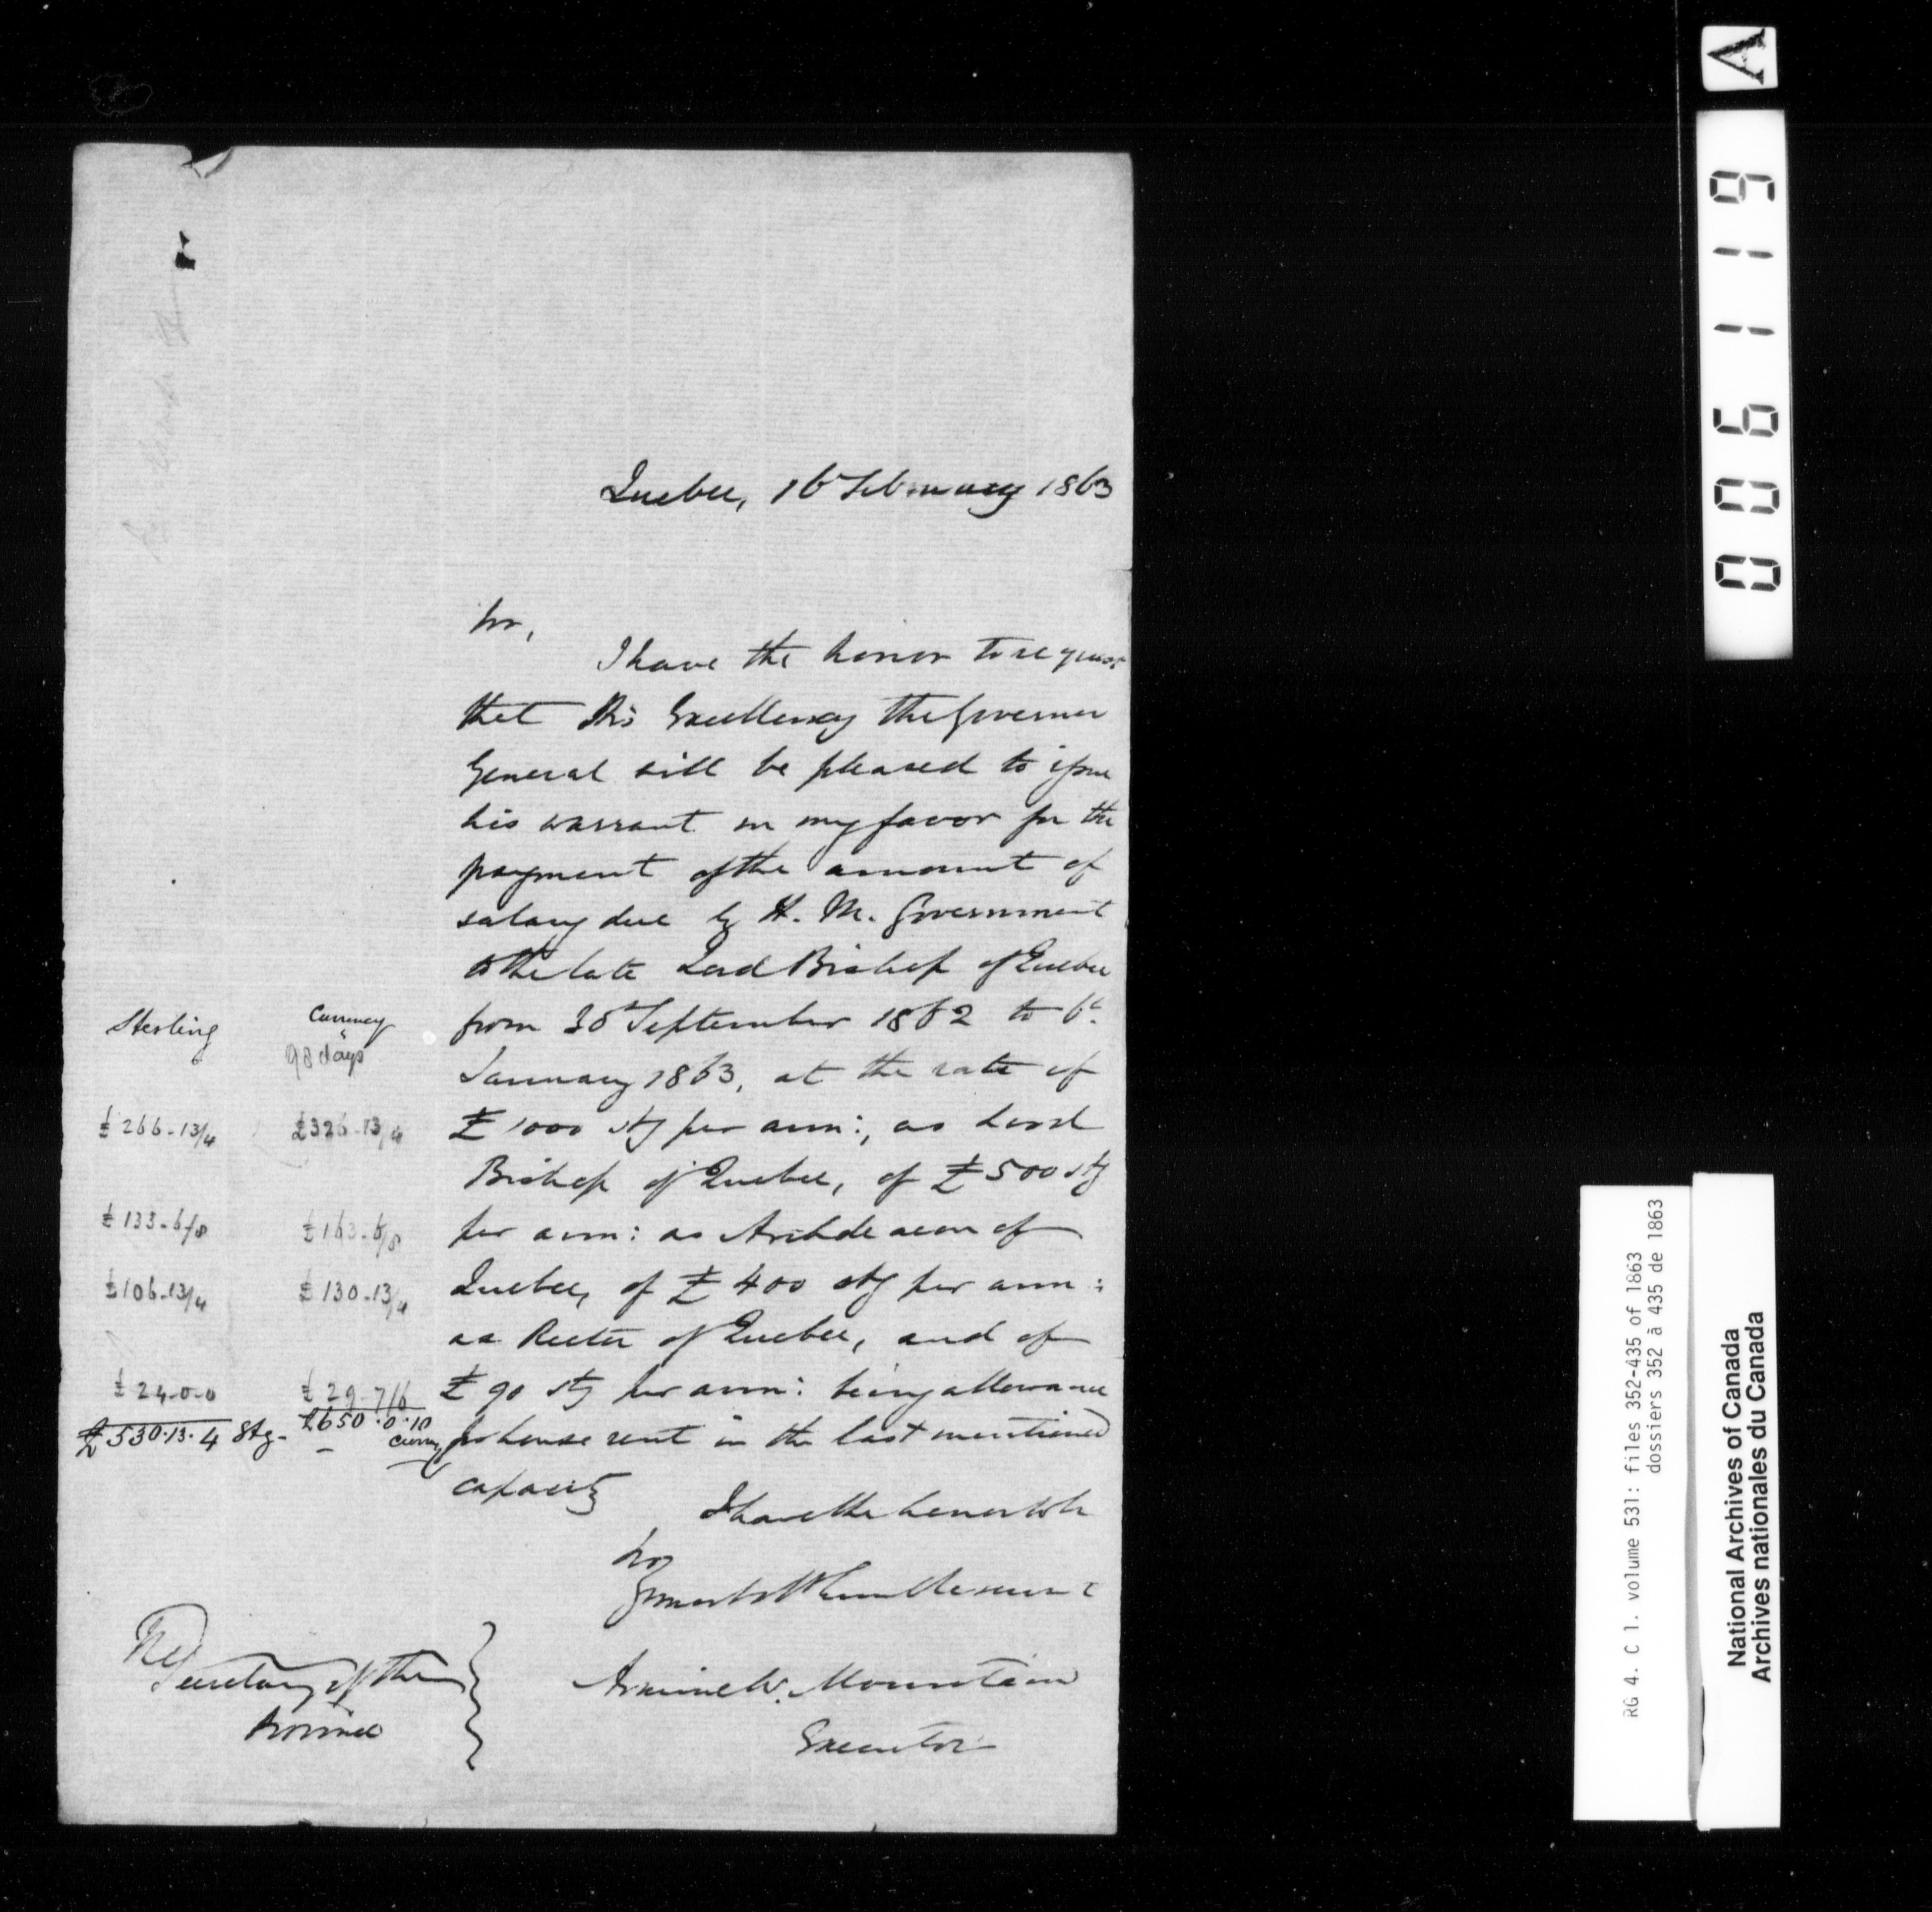 Quebec, 16 February 1863
Sir,
I have the honor to request
that His Excellency the Governor
General will be pleased to issue
his warrant in my favor for the
payment of the amount of
salary due by H. M. Government
to the late Lord Bishop of Quebec
from 30th September 1862 to 6th
January 1863, at the rate of
£1000 stg per ann:, as Lord
Bishop of Quebec, of £500 stg
per ann: as Archdeacon of
Quebec, of £400 stg per ann:
as Rector of Quebec, and of
£90 stg per ann: being allowance
for house rent in the last mentioned
capacity
I have the honor to be
Sir
Your obt. Humble servant
Armine W. Mountain
Executor
The
Secretary of the
Province
Sterling
Currency
98 days
£266-13/4 £326-13/4
£133-6/8 £163-6/8
£106-13/4 £130-13/4
£24-0-0 £29-7/6
£530.13.4 Stg- £650.0.10
Curncy
A
006119
RG 4. C 1. volume 531: files 352-435 of 1863
dossiers 352 à 435 de 1863
National Archives of Canada
Archives nationales du Canada